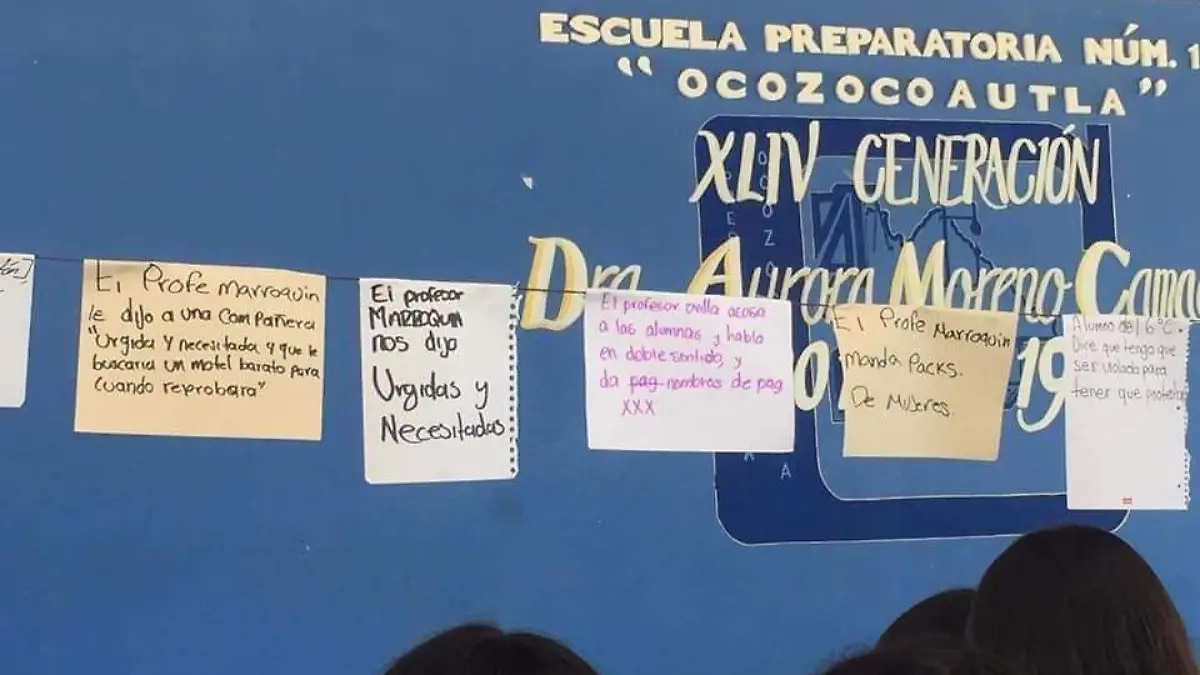 ESCUELA PREPARATORIA NÚM. 1
"OCOZOCOAUTLA"
XLIV GENERACIÓN
Dra. Aurora Moreno Cama
19
El Profe Marroquin
le dijo a una Compañera
"Urgida y necesitada, y que le
buscaria un motel barato para
Cuando reprobara"
El profesor
MARROQUIN
nos dijo
Urgidas y
Necesitadas
El profesor ovilla acosa
a las alumnas y habla
en doble sentido, y
da pag nombres de pag
XXX
El Profe Marroquin
Manda Packs.
De Mujeres.
Alumno del 6° C.
Dice que tengo que
ser violada para
tener que protestar